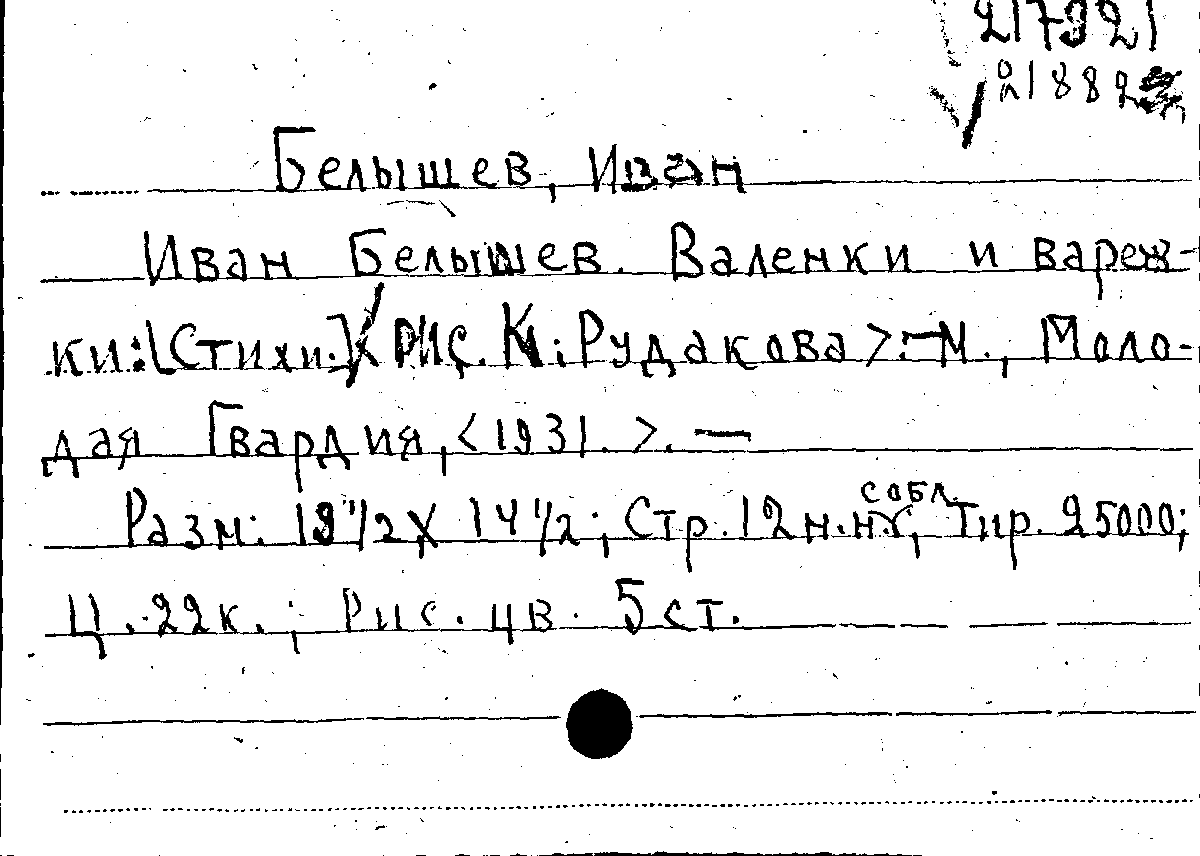 217921
21882
Белышев, Иван
Иван Белышев. Валенки и вареж-
ки: [Стихи.] Рис. К. Рудакова>.–М., Моло-
дая Гвардия, <1931.>.—
Разм: 19 1/2 X 14 1/2; Стр. 12 н.н., с обл. Тир. 25000;
Ц. 22к.; Рис. цв. 5 ст.